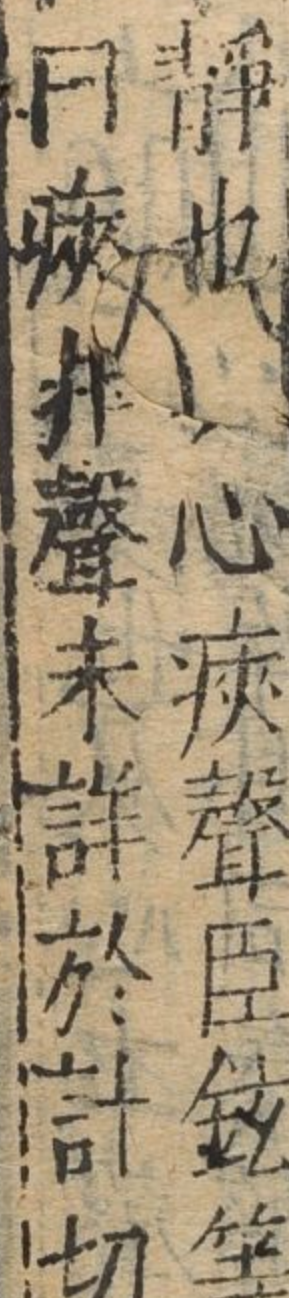 靜也从心㾜聲臣鉉等
曰㾜非聲未詳於計切